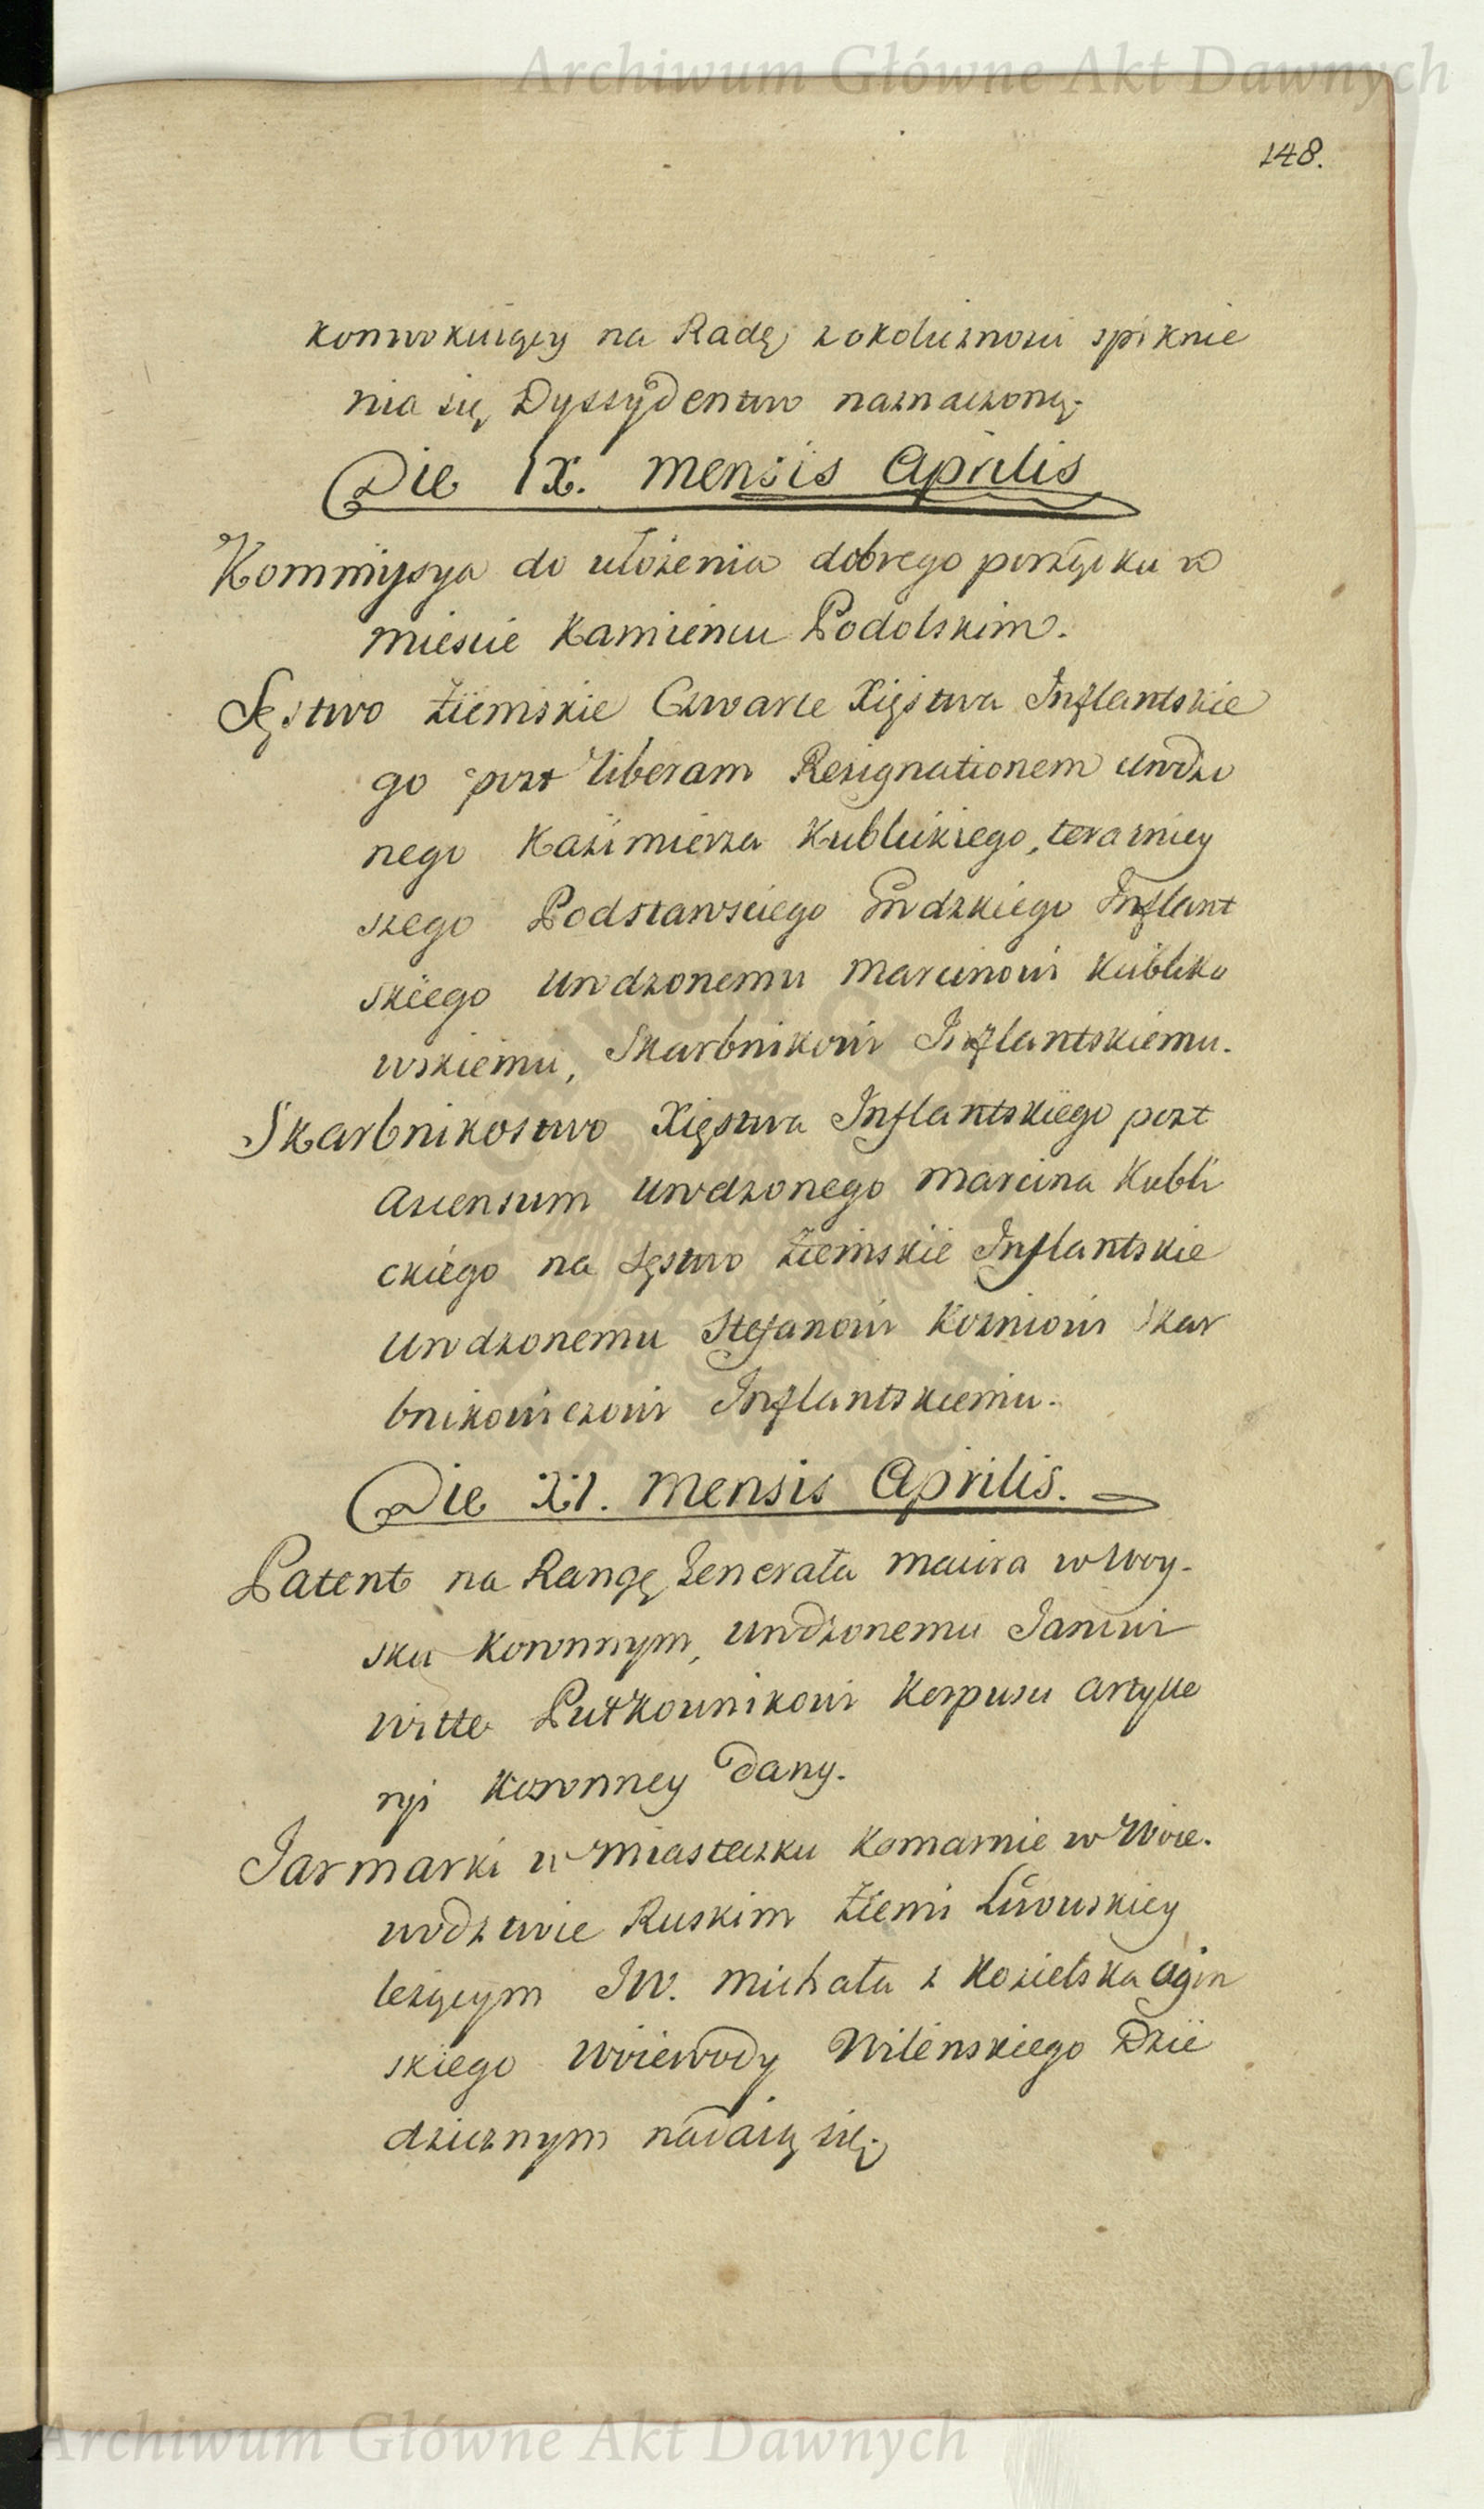 Archiwum Główne Akt Dawnych
148.
konwokuiący na Radę z okoliczności spiknie
nia się Dyssydentow naznaczoną.
Die IX. Mensis Aprilis
Kommissya do ułożenia dobrego porządku w
Miescie Kamieńcu Podolskim.
Sęstwo Ziemskie Czwarte Xięstwa Inflantskie
go post liberam Resignationem Urodzo
nego Kazimierza Kublickiego, terazniey
szego Podstarosciego Grodzkiego Inflant
skiego Urodzonemu Marcinowi Kubliko
wskiemu, Skarbnikowi Inflantskiemu.
Skarbnikostwo Xięstwa Inflantskiego post
Ascensum Urodzonego Marcina Kubli
ckiego na Sęstwo Ziemskie Inflantskie
Urodzonemu Stefanowi Skar
bnikowiczowi Inflantskiemu.
Die XI. Mensis Aprilis.
Patent na Rangę Generała Maiora w Woy-
sku Koronnym, Urodzonemu Janowi
Witte Pułkownikowi Korpusu Artylle
ryi Koronney Dany.
Jarmarki w Miasteczku Komarnie w Woie-
wodztwie Ruskim Ziemi Lwowskiey
leżącym JW. Michała z Kozielska Ogin
skiego Woiewody Wileńskiego Dzie
dzicznym nadaią się.
Archiwum Główne Akt Dawnych